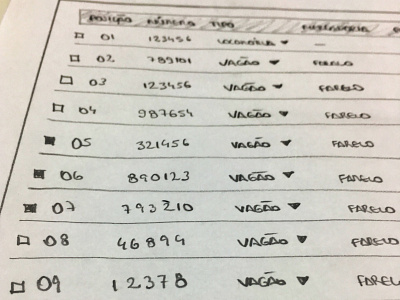 POSIÇÃO NÚMERO TIPO
01 123456 LOCOMOTIVA —
02 789101 VAGÃO FARELO
03 123456 VAGÃO FARELO
04 987654 VAGÃO FARELO
05 321456 VAGÃO FARELO
06 890123 VAGÃO FARELO
07 793210 VAGÃO FARELO
08 46894 VAGÃO FARELO
09 12378 VAGÃO FARELO